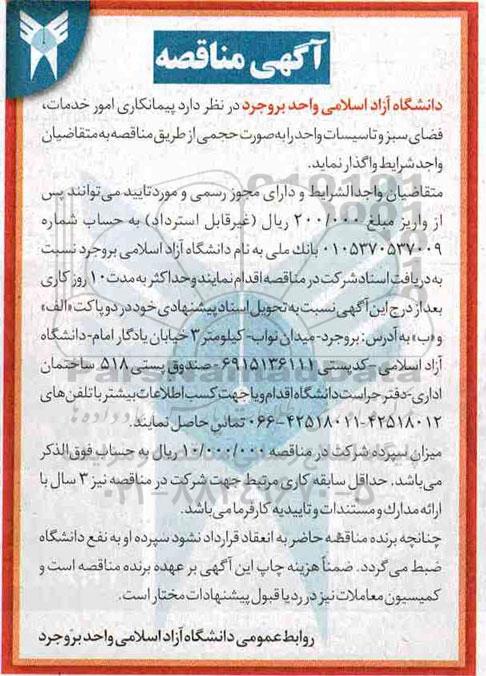 آگهی مناقصه
دانشگاه آزاد اسلامی واحد بروجرد در نظر دارد پیمانکاری امور خدمات،
فضای سبز و تاسیسات واحد را به صورت حجمی از طریق مناقصه به متقاضیان
واجد شرایط واگذار نماید.
متقاضیان واجدالشرایط و دارای مجوز رسمی و مورد تایید می‌توانند پس
از واریز مبلغ ۲۰۰/۰۰۰ ریال (غیرقابل استرداد) به حساب شماره
۰۱۰۵۳۷۰۵۳۷۰۰۹ بانک ملی به نام دانشگاه آزاد اسلامی بروجرد نسبت
به دریافت اسناد شرکت در مناقصه اقدام نمایند و حداکثر به مدت ۱۰ روز کاری
بعد از درج این آگهی نسبت به تحویل اسناد پیشنهادی خود در دو پاکت «الف»
و «ب» به آدرس: بروجرد- میدان نواب- کیلومتر ۳ خیابان یادگار امام- دانشگاه
آزاد اسلامی - کدپستی ۶۹۱۵۱۳۶۱۱۱ صندوق پستی ۵۱۸ ساختمان
اداری- دفتر حراست دانشگاه اقدام و یا جهت کسب اطلاعات بیشتر با تلفن‌های
۴۲۵۱۸۰۱۲-۴۲۵۱۸۰۱۱-۰۶۶ تماس حاصل نمایند.
میزان سپرده شرکت در مناقصه ۱۰/۰۰۰/۰۰۰ ریال به حساب فوق‌الذکر
می‌باشد. حداقل سابقه کاری مرتبط جهت شرکت در مناقصه نیز ۳ سال با
ارائه مدارک و مستندات و تاییدیه کارفرما می‌باشد.
چنانچه برنده مناقصه حاضر به انعقاد قرارداد نشود سپرده او به نفع دانشگاه
ضبط می‌گردد. ضمناً هزینه چاپ این آگهی بر عهده برنده مناقصه است و
کمیسیون معاملات نیز در رد یا قبول پیشنهادات مختار است.
روابط عمومی دانشگاه آزاد اسلامی واحد بروجرد
ParsNamadData
۰۲۱-۸۸۳۴۹۶۷۰-۵